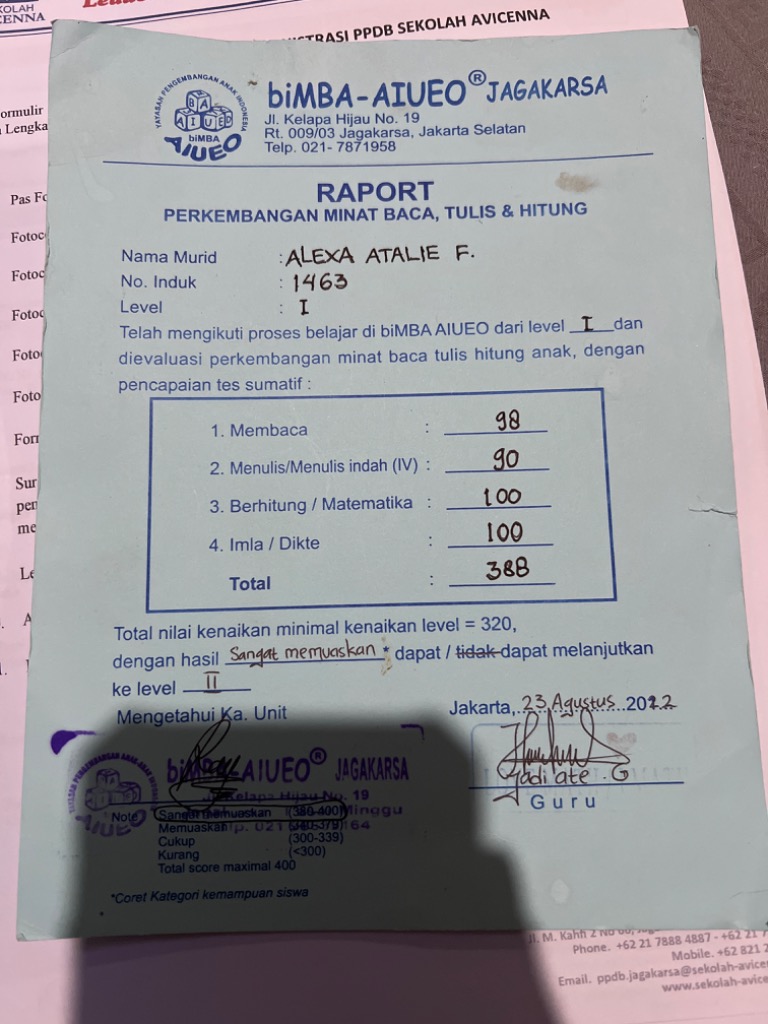 OLAH
CENNA
STRASI PPDB SEKOLAH AVICENNA
ormulir
Lengka
Pas Fo
Fotoc
Fotoc
Fotoc
Fotoc
Foto
Forr
Sur
pen
me
Le
YAYASAN PENGEMBANGAN ANAK INDONESIA
BA
AIUEO
biMBA
AIUEO
biMBA-AIUEO® JAGAKARSA
Jl. Kelapa Hijau No. 19
Rt. 009/03 Jagakarsa, Jakarta Selatan
Telp. 021- 7871958
RAPORT
PERKEMBANGAN MINAT BACA, TULIS & HITUNG
Nama Murid : ALEXA ATALIE F.
No. Induk : 1463
Level : I
Telah mengikuti proses belajar di biMBA AIUEO dari level I dan
dievaluasi perkembangan minat baca tulis hitung anak, dengan
pencapaian tes sumatif :
1. Membaca : 98
2. Menulis/Menulis indah (IV) : 90
3. Berhitung / Matematika : 100
4. Imla / Dikte : 100
Total : 388
Total nilai kenaikan minimal kenaikan level = 320,
dengan hasil Sangat memuaskan * dapat / tidak dapat melanjutkan
ke level II
Mengetahui Ka. Unit
Jakarta, 23 Agustus 2022
biMBA-AIUEO® JAGAKARSA
Jl. Kelapa Hijau No. 19
Minggu
AIUEO
Note
Sangat memuaskan (380-400)
Memuaskan (340-379)
Cukup (300-339)
Kurang (<300)
Total score maximal 400
*Coret Kategori kemampuan siswa
Guru
Jl. M. Kahfi 2 No
Phone. +62 21 7888 4887 - +62 21 7
Mobile. +62 821 2
Email. ppdb.jagakarsa@sekolah-avice
www.sekolah-avice